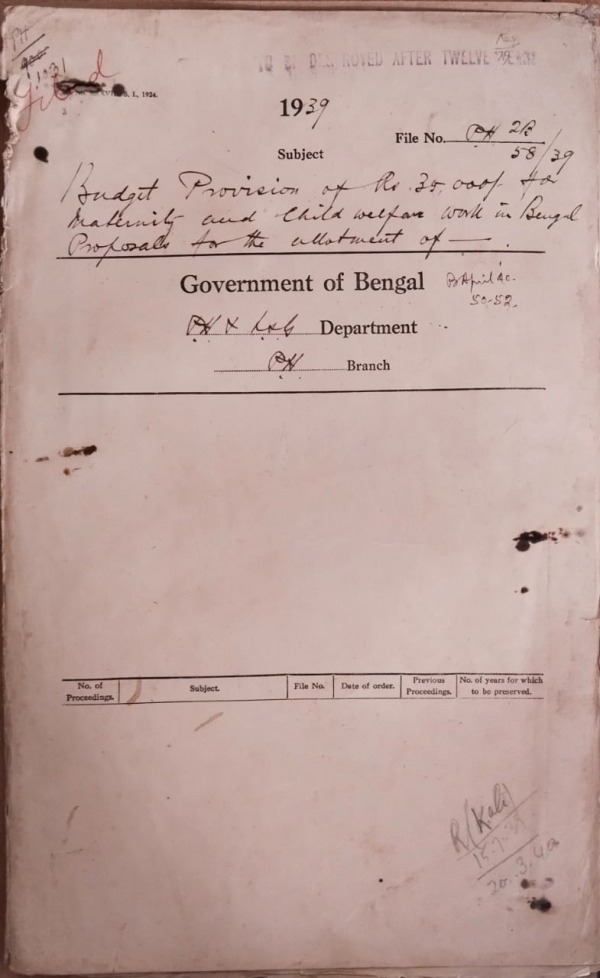 PH
1931
Filed
L, 1924.
TO BE DESTROYED AFTER TWELVE YEARS
1939
File No. PH 2R
58/39
Subject
Budget Provision of Rs. 35,000/- for
Maternity and Child welfare work in Bengal
Proposals for the allotment of — .
Government of Bengal B April 40.
50-52.
PH & LSG Department
PH Branch
No. of Proceedings. Subject. File No. Date of order. Previous Proceedings. No. of years for which to be preserved.
R (Kali)
20.3.40